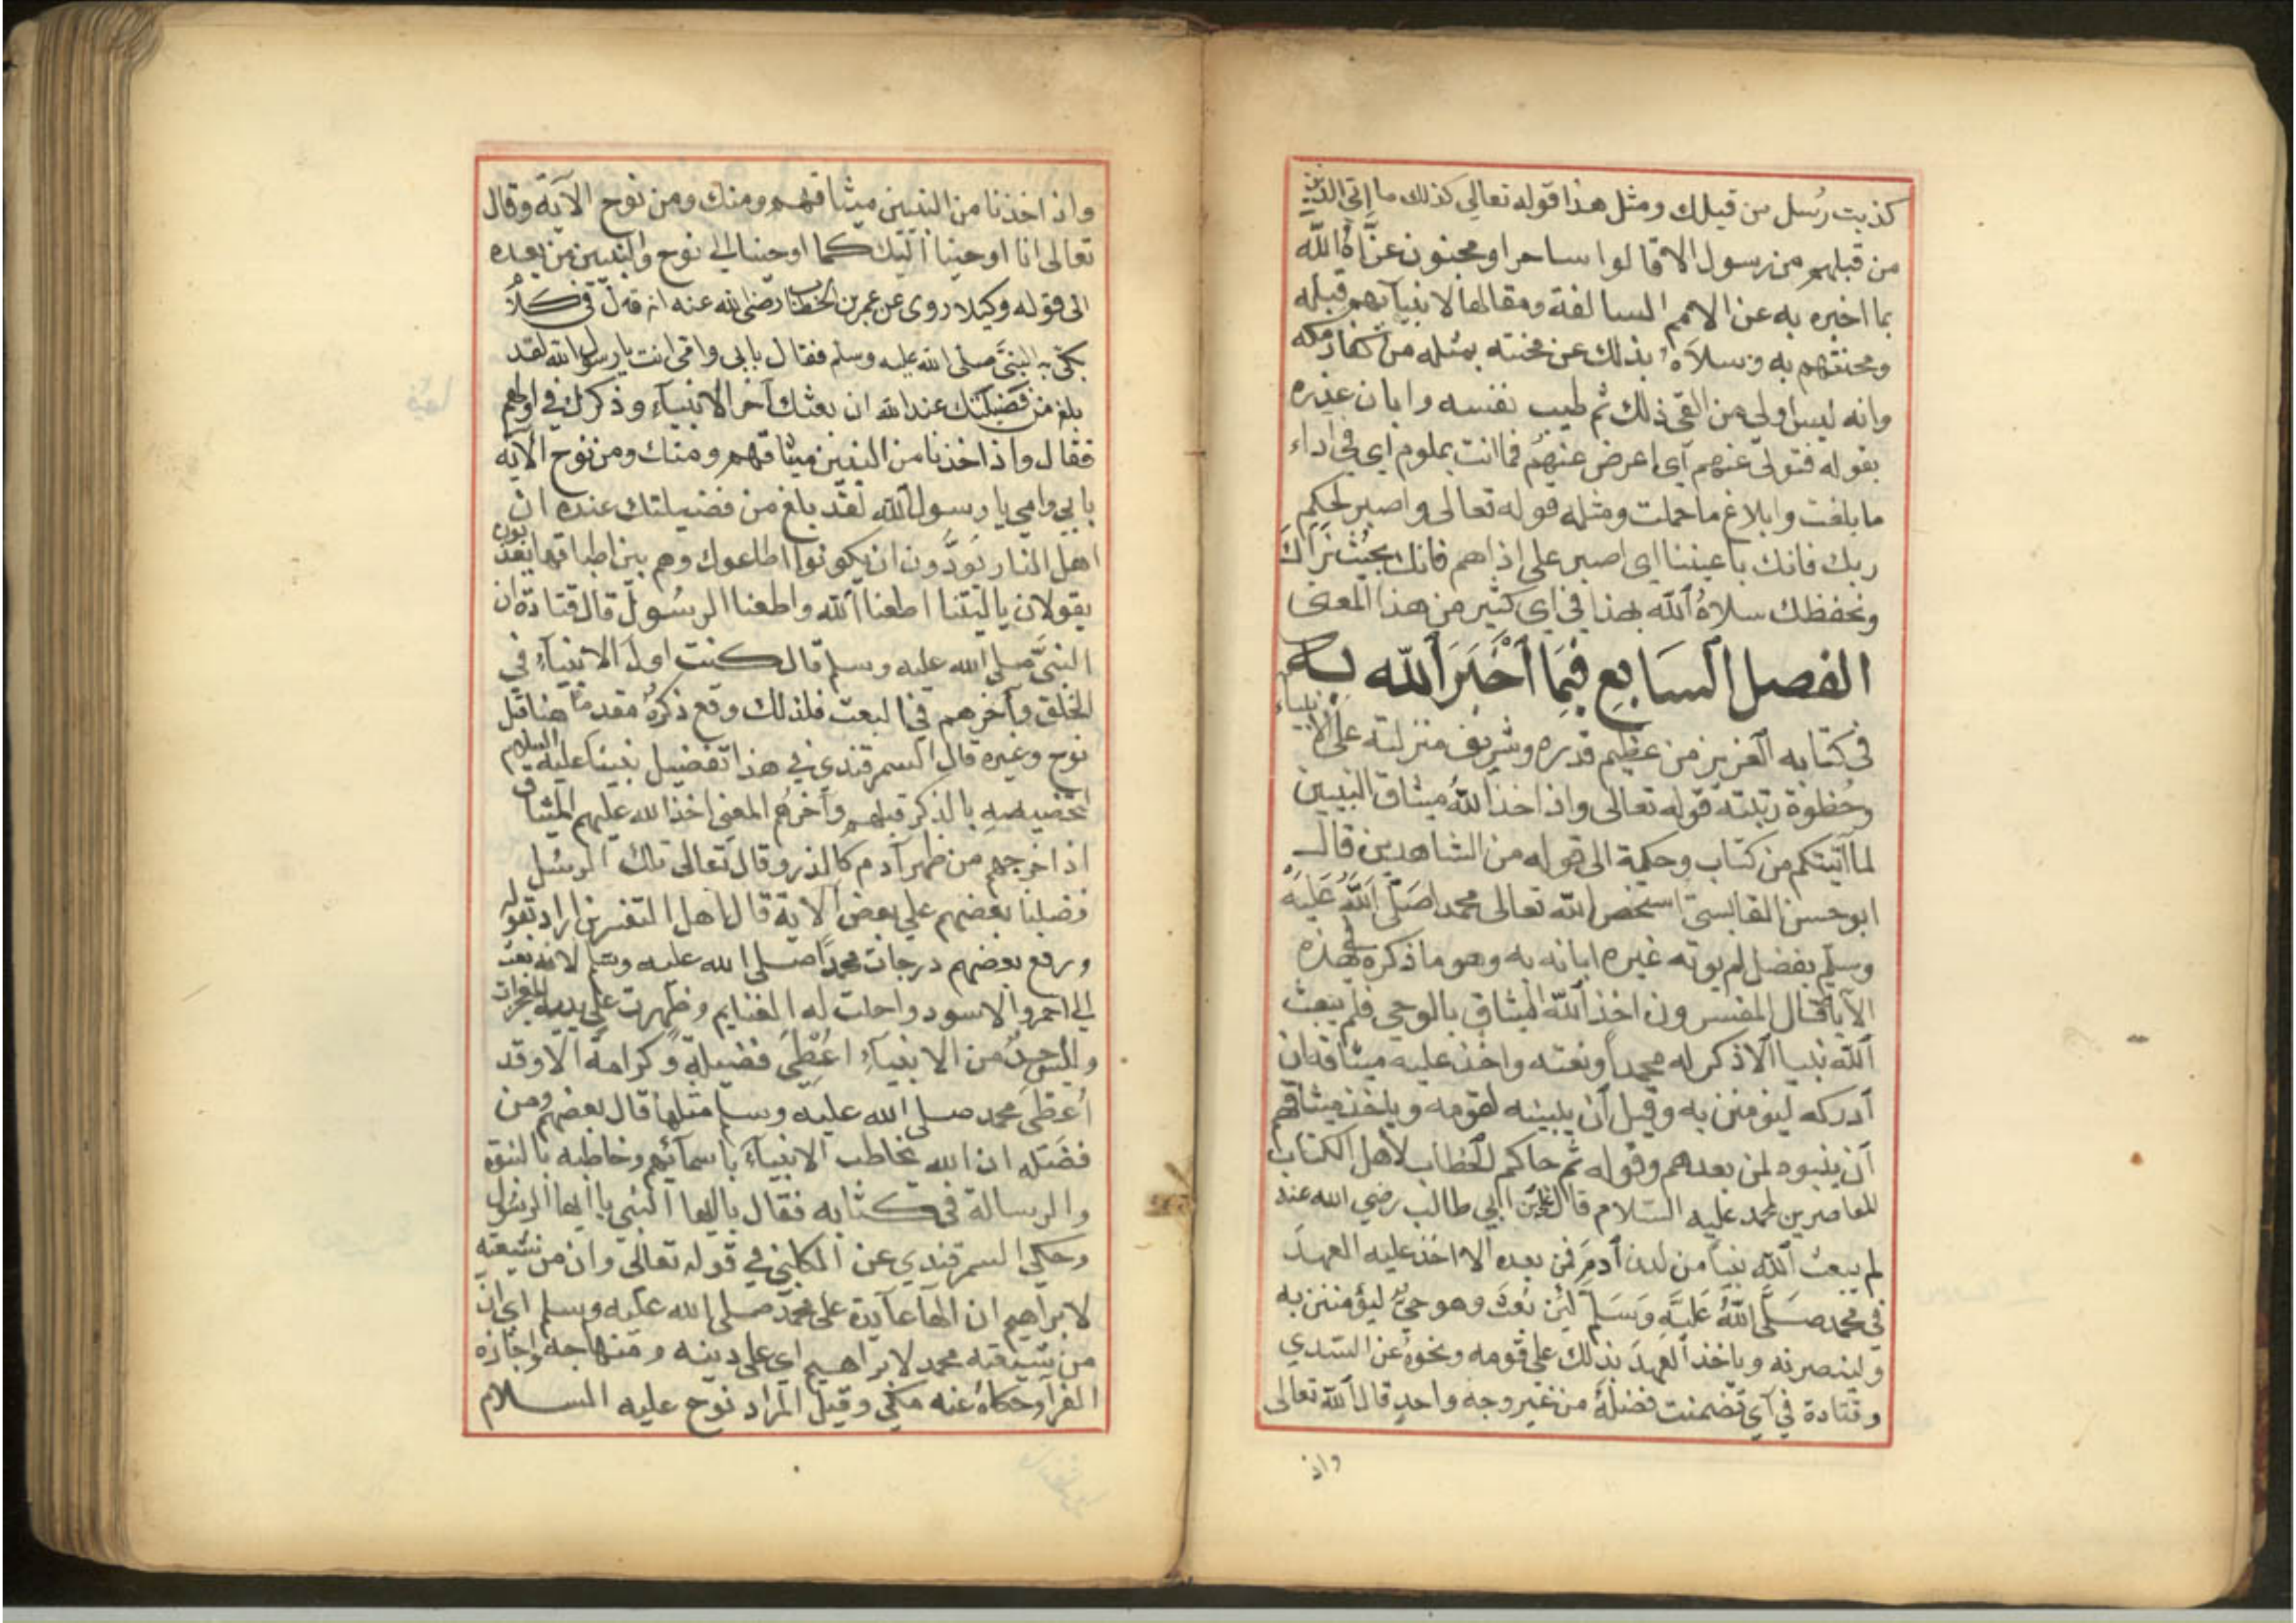 كذبت رسل من قبلك ومثل هذا قوله تعالى كذلك ما اتى الذين
من قبلهم من رسول الا قالوا ساحر او مجنون عزاه الله
بما اخبره به عن الامم السالفة ومقالها لانبيآئهم قبله
ومحنتهم به وسلاه بذلك عن محنته بمثله من كفار مكه
وانه ليس اولى من لقى ذلك ثم طيب نفسه وابان عذره
بقوله فتولى عنهم اى اعرض عنهم فما انت بملوم اى فى اداء
ما بلغت وابلاغ ما حملت ومثله قوله تعالى واصبر لحكم
ربك فانك باعيننا اى اصبر على اذاهم فانك بحيث نراك
ونحفظك سلاه الله بهذا فى اى كثير من هذا المعنى
الفصل السابع فيما اخبر الله به
فى كتابه العزيز من عظيم قدره وشريف منزلته على الانبياء
وحظوة رتبته قوله تعالى واذ اخذ الله ميثاق النبيين
لما آتيتكم من كتاب وحكمة الى قوله من الشاهدين قال
ابو حسن القابسى استخص الله تعالى محمدا صلى الله عليه
وسلم بفضل لم يوته غيره ابانه به وهو ما ذكره فى هذه
الآية قال المفسرون اخذ الله الميثاق بالوحى فلم يبعث
الله نبيا الا ذكر له محمدا ونعته واخذ عليه ميثاقه ان
ادركه ليؤمنن به وقيل ان يبينه لقومه وياخذ ميثاقهم
ان يبينوه لمن بعدهم وقوله ثم جاكم الخطاب لاهل الكتاب
المعاصرين لمحمد عليه السلام قال على بن ابى طالب رضي الله عنه
لم يبعث الله نبيا من لدن آدم فمن بعده الا اخذ عليه العهد
فى محمد صلى الله عليه وسلم لئن بعث وهو حي ليؤمنن به
ولينصرنه وياخذ العهد بذلك على قومه ونحوه عن السدي
وقتادة في آي تضمنت فضله من غير وجه واحد قال الله تعالى
واذ
واذ اخذنا من النبيين ميثاقهم ومنك ومن نوح الآية وقال
تعالى انا اوحينا اليك كما اوحينا الى نوح والنبيين من بعده
الى قوله وكيلا روى عن عمر بن الخطاب رضي الله عنه انه قال فى كلام
بكى به النبي صلى الله عليه وسلم فقال بابى وامى انت يا رسول الله لقد
بلغ من فضيلتك عند الله ان بعثك آخر الانبياء وذكرك في اولهم
فقال واذ اخذنا من النبيين ميثاقهم ومنك ومن نوح الآية
بابي وامي يا رسول الله لقد بلغ من فضيلتك عنده ان
اهل النار يودون ان يكونوا اطاعوك وهم بين اطباقها يعذبون
يقولون يا ليتنا اطعنا الله واطعنا الرسول قال قتادة ان
النبي صلى الله عليه وسلم قال كنت اول الانبيآء في
الخلق وآخرهم في البعث فلذلك وقع ذكره مقدما هنا قبل
نوح وغيره قال السمرقندي في هذا تفضيل نبينا عليه السلام
لتخصيصه بالذكر قبلهم وآخرهم المعنى اخذ الله عليهم الميثاق
اذ اخرجهم من ظهر آدم كالذر وقال تعالى تلك الرسل
فضلنا بعضهم على بعض الاية قال اهل التفسير اراد بقوله
ورفع بعضهم درجات محمدا صلى الله عليه وسلم لانه بعث
الى الاحمر والاسود واحلت له الغنايم وظهرت على يديه المعجزات
وليس احد من الانبيآء اعطى فضيلة وكرامة الا وقد
اعطى محمد صلى الله عليه وسلم مثلها قال بعضهم ومن
فضله ان الله يخاطب الانبيآء باسمآئهم وخاطبه بالنبوة
والرسالة في كتابه فقال يا ايها النبي يا ايها الرسول
وحكى السمرقندي عن الكلبي في قوله تعالى وان من شيعته
لابراهيم ان الهآء عايدة على محمد صلى الله عليه وسلم اي ان
من شيعته محمد لابراهيم اي على دينه ومنهاجه واجازه
الفرآء وحكاه عنه مكي وقيل المراد نوح عليه السلام